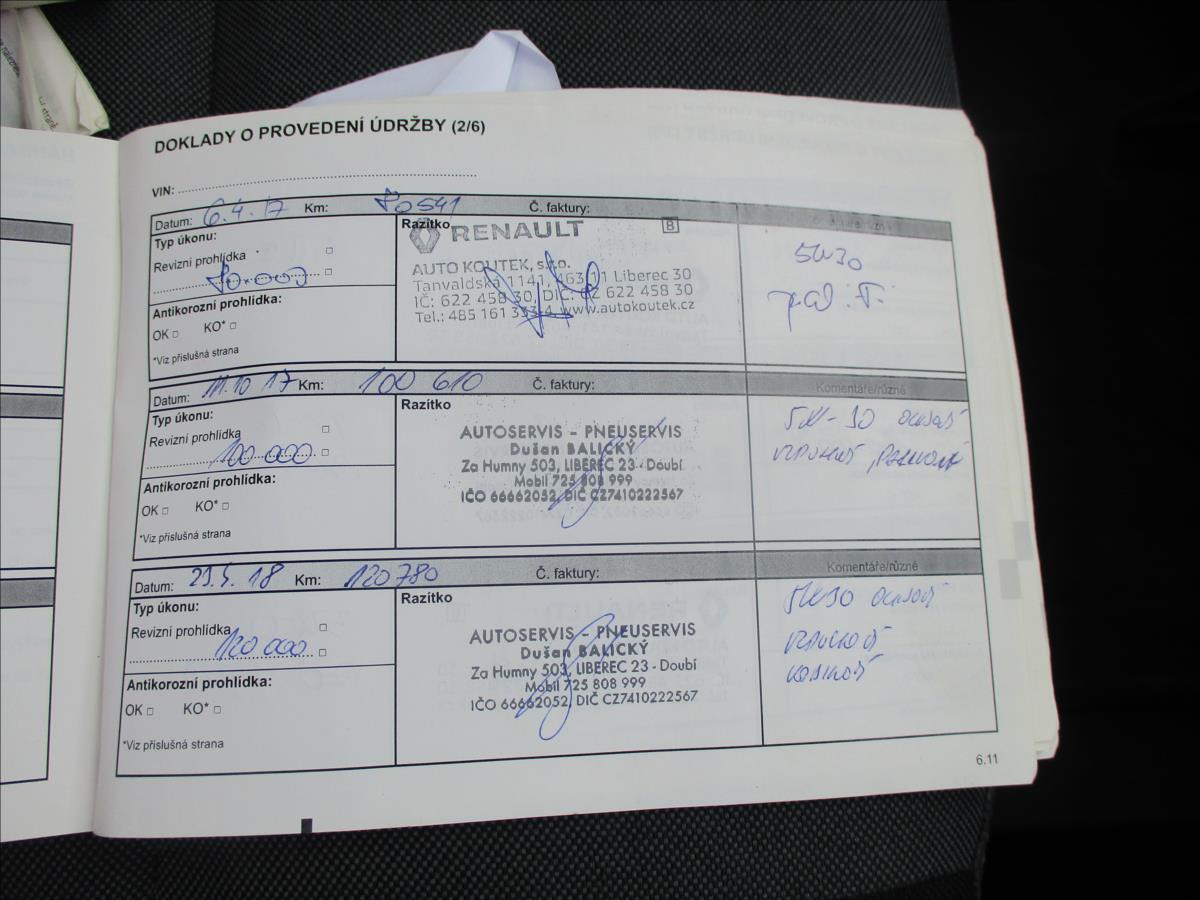 DOKLADY O PROVEDENÍ ÚDRŽBY (2/6)
VIN:
Datum: 6.4.17 Km: 80541 Č. faktury:
Typ úkonu:
Revizní prohlídka
80.000
Antikorozní prohlídka:
OK KO*
*Viz příslušná strana
Razítko
RENAULT B
AUTO KOUTEK, s.r.o.
Tanvaldská 1141, 463 11 Liberec 30
IČ: 622 458 30, DIČ: CZ 622 458 30
Tel.: 485 161 333-4, www.autokoutek.cz
5W30
Datum: 11.10 17 Km: 100 610 Č. faktury: Komentáře/různé
Typ úkonu:
Revizní prohlídka
100.000
Antikorozní prohlídka:
OK KO*
*Viz příslušná strana
Razítko
AUTOSERVIS - PNEUSERVIS
Dušan BALICKÝ
Za Humny 503, LIBEREC 23 - Doubí
Mobil 725 808 999
IČO 66662052, DIČ CZ7410222567
5W-30
Datum: 29.5.18 Km: 120780 Č. faktury: Komentáře/různé
Typ úkonu:
Revizní prohlídka
120.000
Antikorozní prohlídka:
OK KO*
*Viz příslušná strana
Razítko
AUTOSERVIS - PNEUSERVIS
Dušan BALICKÝ
Za Humny 503, LIBEREC 23 - Doubí
Mobil 725 808 999
IČO 66662052, DIČ CZ7410222567
5W30
6.11